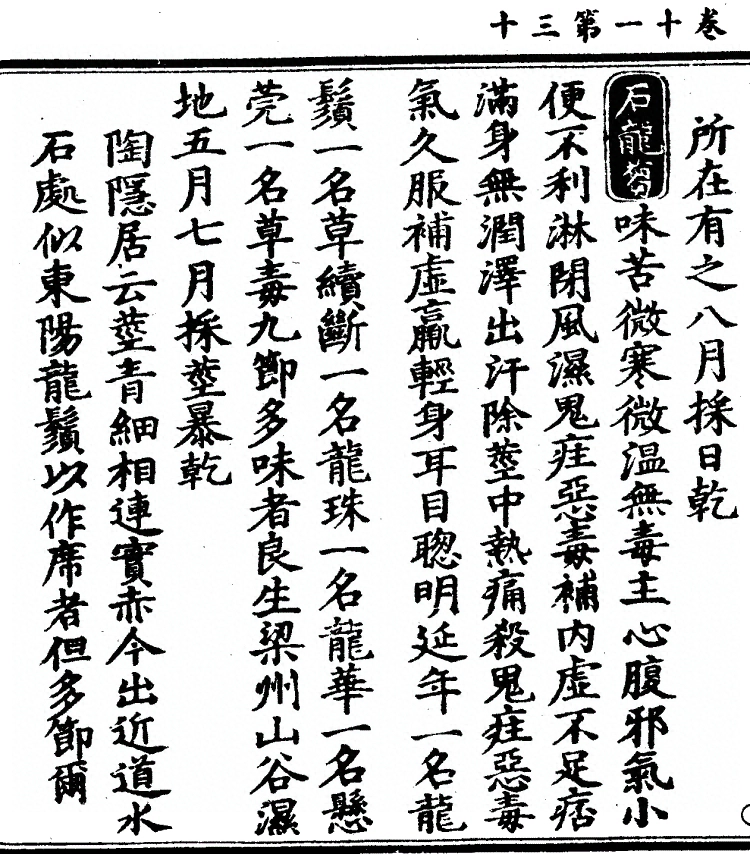 卷十一第三十
所在有之八月採日乾
石龍芻味苦微寒微温無毒主心腹邪氣小
便不利淋閉風濕鬼疰惡毒補内虛不足痞
滿身無潤澤出汗除莖中熱痛殺鬼疰惡毒
氣久服補虛羸輕身耳目聰明延年一名龍
鬚一名草續斷一名龍珠一名龍華一名懸
莞一名草毒九節多味者良生梁州山谷濕
地五月七月採莖暴乾
陶隱居云莖青細相連實赤今出近道水
石處似東陽龍鬚以作席者但多節爾